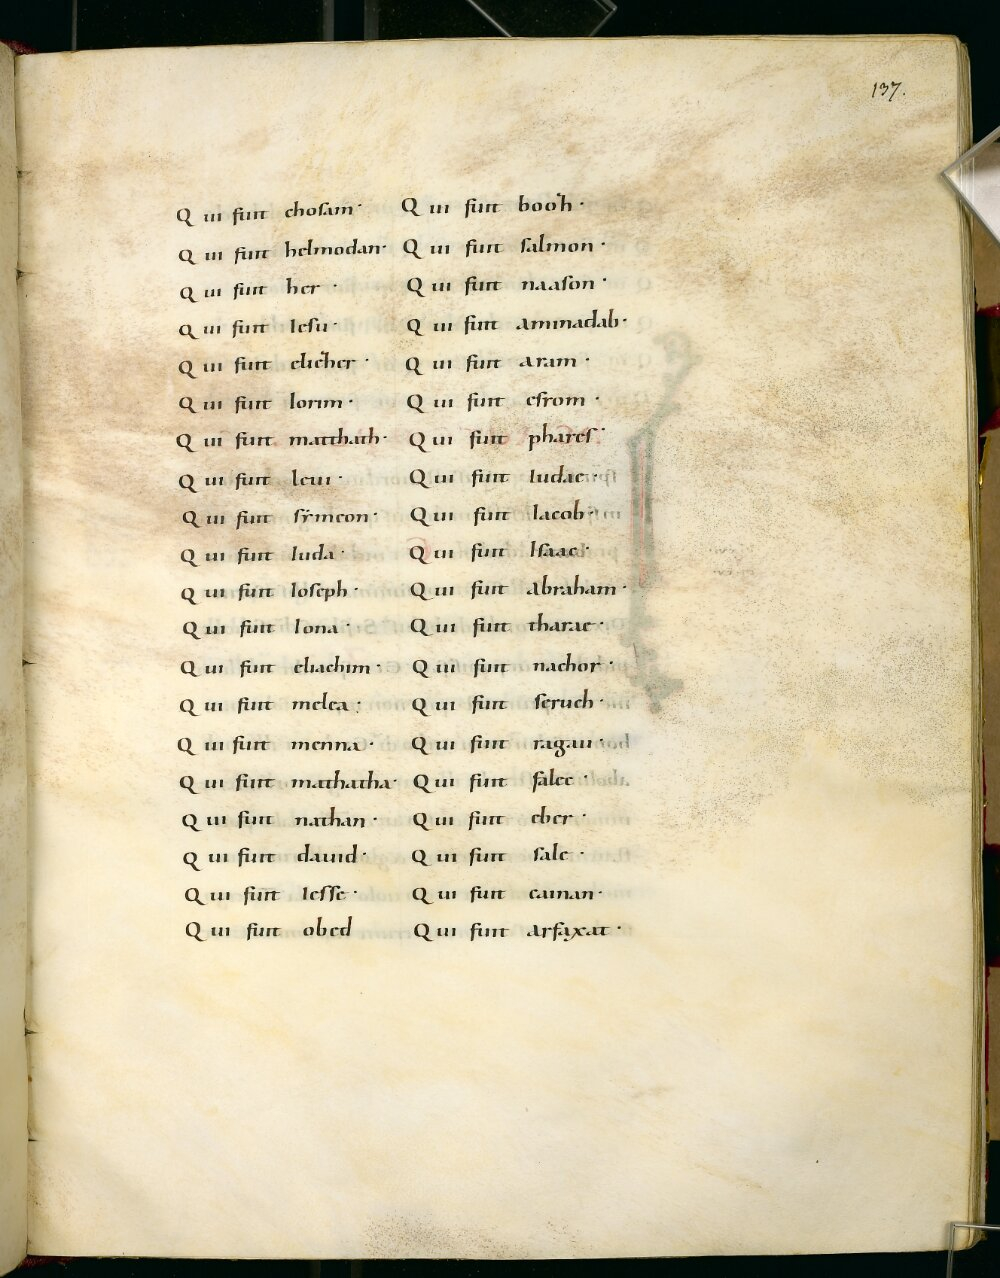 137.
Qui fuit chosam·
Qui fuit helmodan·
Qui fuit her·
Qui fuit Iesu·
Qui fuit eliezer·
Qui fuit Iorim·
Qui fuit matthath·
Qui fuit leui·
Qui fuit sẏmeon·
Qui fuit Iuda·
Qui fuit Ioseph·
Qui fuit Iona·
Qui fuit eliachim·
Qui fuit melea·
Qui fuit menna·
Qui fuit mathatha·
Qui fuit nathan·
Qui fuit dauid·
Qui fuit Iesse·
Qui fuit obed
Qui fuit booh·
Qui fuit salmon·
Qui fuit naason·
Qui fuit aminadab·
Qui fuit aram·
Qui fuit esrom·
Qui fuit phares·
Qui fuit Iudae·
Qui fuit Iacob·
Qui fuit Isaac·
Qui fuit abraham·
Qui fuit tharae·
Qui fuit nachor·
Qui fuit seruch·
Qui fuit ragau·
Qui fuit falec·
Qui fuit eber·
Qui fuit sale·
Qui fuit cainan·
Qui fuit arfaxat·